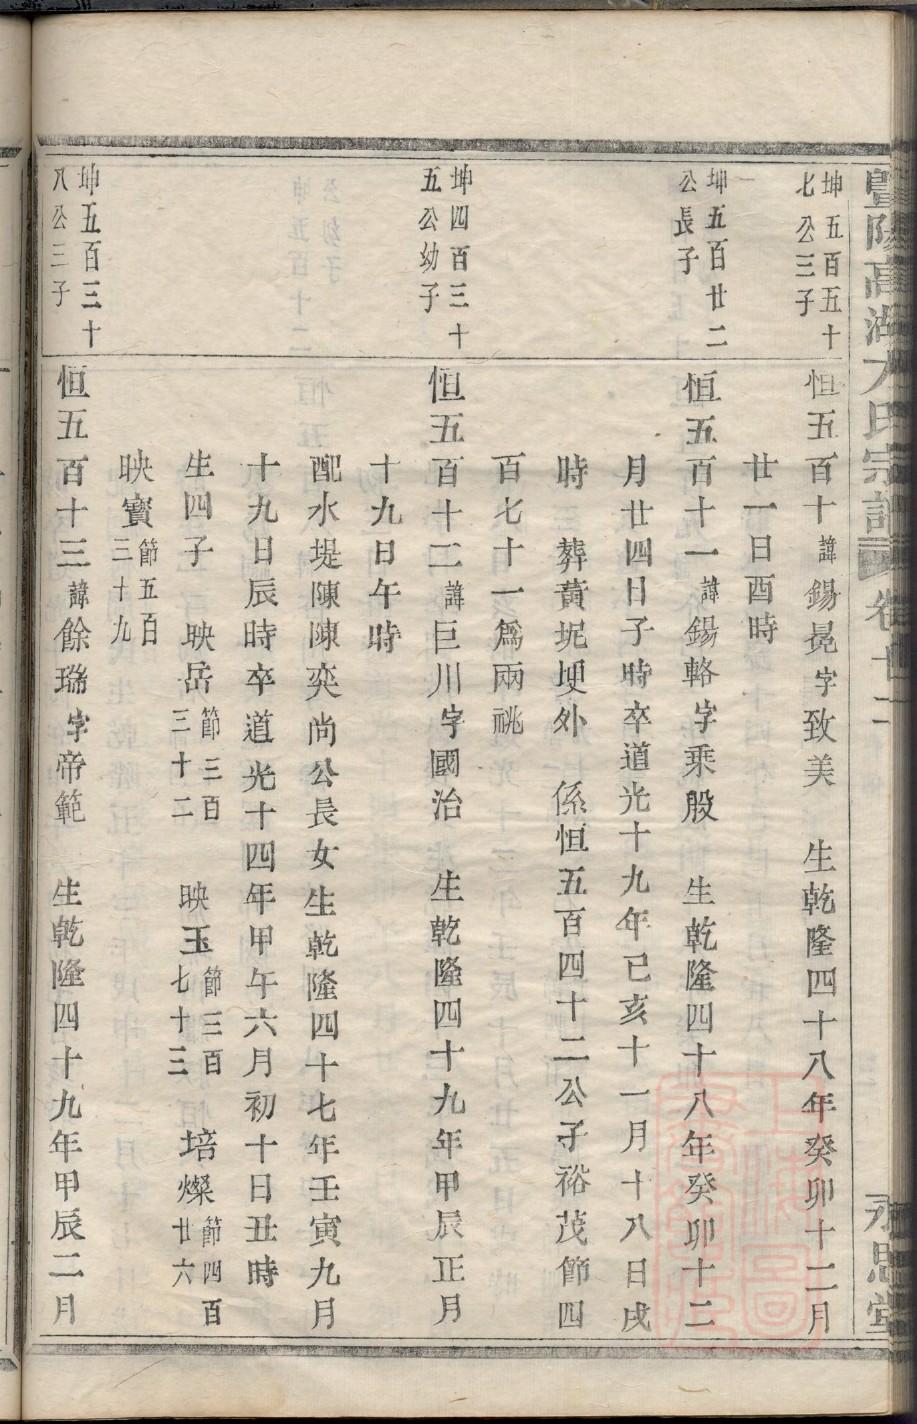 暨陽高湖方氏宗譜 卷廿二 永思堂
坤五百五十
七公三子
恒五百十諱錫冕字致美 生乾隆四十八年癸卯十二月
廿一日酉時
坤五百廿二
公長子
恒五百十一諱錫輅字乘殷 生乾隆四十八年癸卯十二
月廿四日子時卒道光十九年己亥十一月十八日戌
時 葬黃坭埂外 係恒五百四十二公子裕茂節四
百七十一爲兩祧
坤四百三十
五公幼子
恒五百十二諱巨川字國治 生乾隆四十九年甲辰正月
十九日午時
配水堤陳陳奕尚公長女生乾隆四十七年壬寅九月
十九日辰時卒道光十四年甲午六月初十日丑時
生四子 映岳節三百三十二 映玉節三百七十三 培燦節四百廿六
映寳節五百三十九
坤五百三十
八公三子
恒五百十三諱餘瑞字帝範 生乾隆四十九年甲辰二月